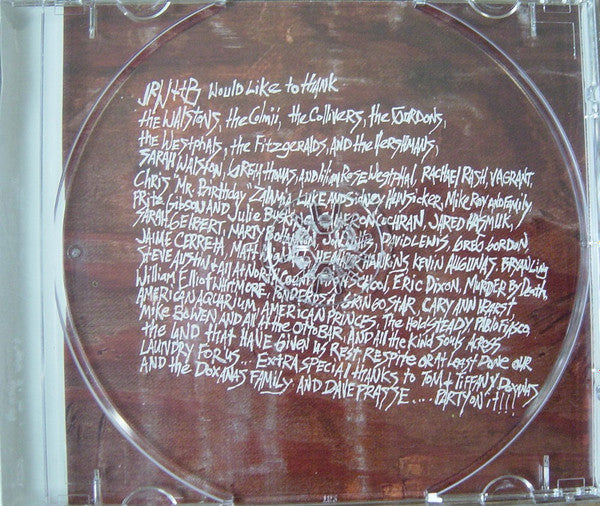 JRN++B Would Like to thank
the WALSTONS, the Colmii, the Collivers, the Gordons,
the Westphals, the Fitzgeralds, and the Hershmans,
SARAH WALSTON, and Alison Rose Westphal, RACHAEL RASH, VAGRANT,
Chris "Mr. Birthday" LUKE and Sidney Hunsicker, Mike Roy and family,
Fritz Gibson and Julie CAMERON COCHRAN, JARED
SARAH GELBERT, MARTY DAVID LEWIS, GREG GORDON,
JAIME MATT HAWKINS, KEVIN BRYAN
STEVE AUSTIN + All AT NORTH COUNTY High School, ERIC DIXON, MURDER By Death,
William Elliott WHITMORE, PONDEROSA, GRINGO STAR, CARY ANN HEARST,
AMERICAN AQUARIUM, AMERICAN PRINCES, The Hold STEADY, PABLO
Mike BOWEN AND All AT the OttoBAR, AND All the Kind Souls ACROSS
the land that HAVE GIVEN US REST, RESPITE OR At LEAST DONE OUR
LAUNDRY FOR US... EXTRA SPECIAl tHANKS to TOM + TIFFANY DOXANAS
AND the DOXANAS FAMILY AND DAVE PRASSE.... PARTY ON"!!!!